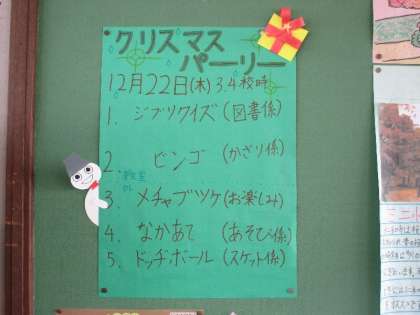 クリスマス
パーリー
12月22日(木) 3.4校時
1. ジブリクイズ (図書係)
2. ビンゴ (かざり係)
3. メチャブツケ (お楽しみ)
4. なかあて (あそび係)
5. ドッヂボール (スケット係)